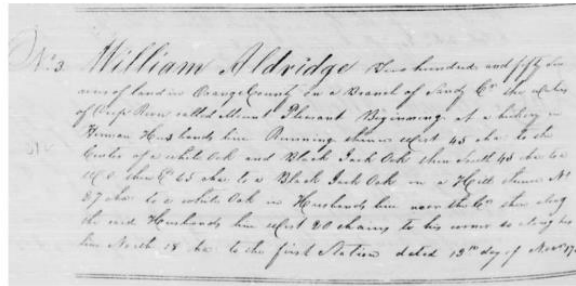 No. 3 William Aldridge Two hundred and fifty
acres of land in Orange County on a Branch of Sandy Cr the waters
of Deep River called Mount Pleasant Beginning at a hickory in
Herman Husbands line Running thence West 45 cha to the
Center of a white Oak and Black Jack Oak then South 45 cha to a
then E 65 cha to a Black Jack Oak on a Hill thence No
27 cha to a white Oak in Husbands line near the Cr then along
the said Husbands line West 20 chains to his corner so along his
line North 18 cha to the first Station dated 13th day of Novr